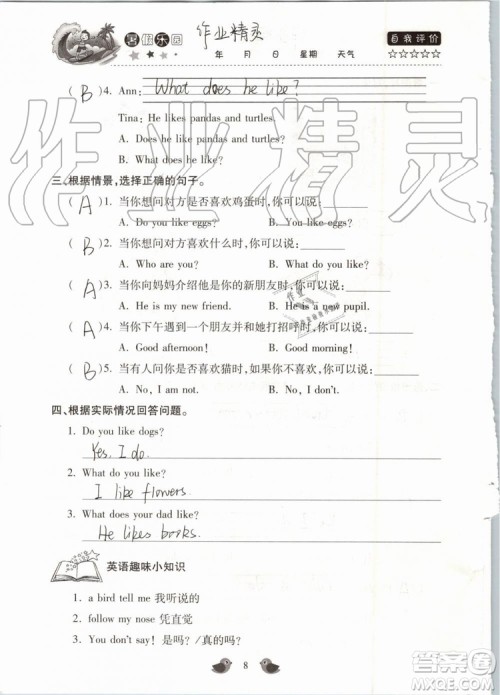 暑假乐园 作业精灵
年 月 日 星期 天气 自我评价 ☆☆☆☆☆
( B )4. Ann: What does he like?
Tina: He likes pandas and turtles.
A. Does he like pandas and turtles?
B. What does he like?
三、根据情景,选择正确的句子。
( A )1. 当你想问对方是否喜欢鸡蛋时,你可以说:
A. Do you like eggs? B. You like eggs?
( B )2. 当你想问对方喜欢什么时,你可以说:
A. Who are you? B. What do you like?
( A )3. 当你向妈妈介绍他是你的新朋友时,你可以说:
A. He is my new friend. B. He is a new pupil.
( A )4. 当你下午遇到一个朋友并和她打招呼时,你可以说:
A. Good afternoon! B. Good morning!
( B )5. 当有人问你是否喜欢猫时,如果你不喜欢,你可以说:
A. No, I am not. B. No, I don't.
四、根据实际情况回答问题。
1. Do you like dogs?
Yes, I do.
2. What do you like?
I like flowers.
3. What does your dad like?
He likes books.
英语趣味小知识
1. a bird tell me 我听说的
2. follow my nose 凭直觉
3. You don't say! 是吗?/真的吗?
8
作业精灵
MXQE.COM